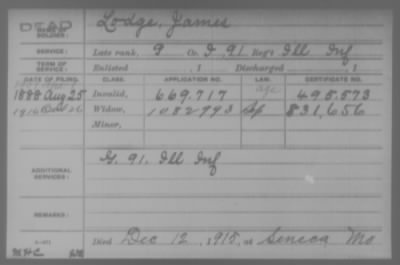 DEAD
NAME OF SOLDIER: Lodge, James
SERVICE: Late rank, P Co. I, 91 Reg't Ill Inf
TERM OF SERVICE: Enlisted , 1 Discharged , 1
DATE OF FILING. CLASS. APPLICATION NO. LAW. CERTIFICATE NO.
1888 Aug 25 Invalid, 669.717 age 495.573
1916 26 Widow, 1082793 831,656
Minor,
ADDITIONAL SERVICES: G. 91. Ill Inf
REMARKS:
Died Dec 12, 1915, at Seneca Mo
MHC